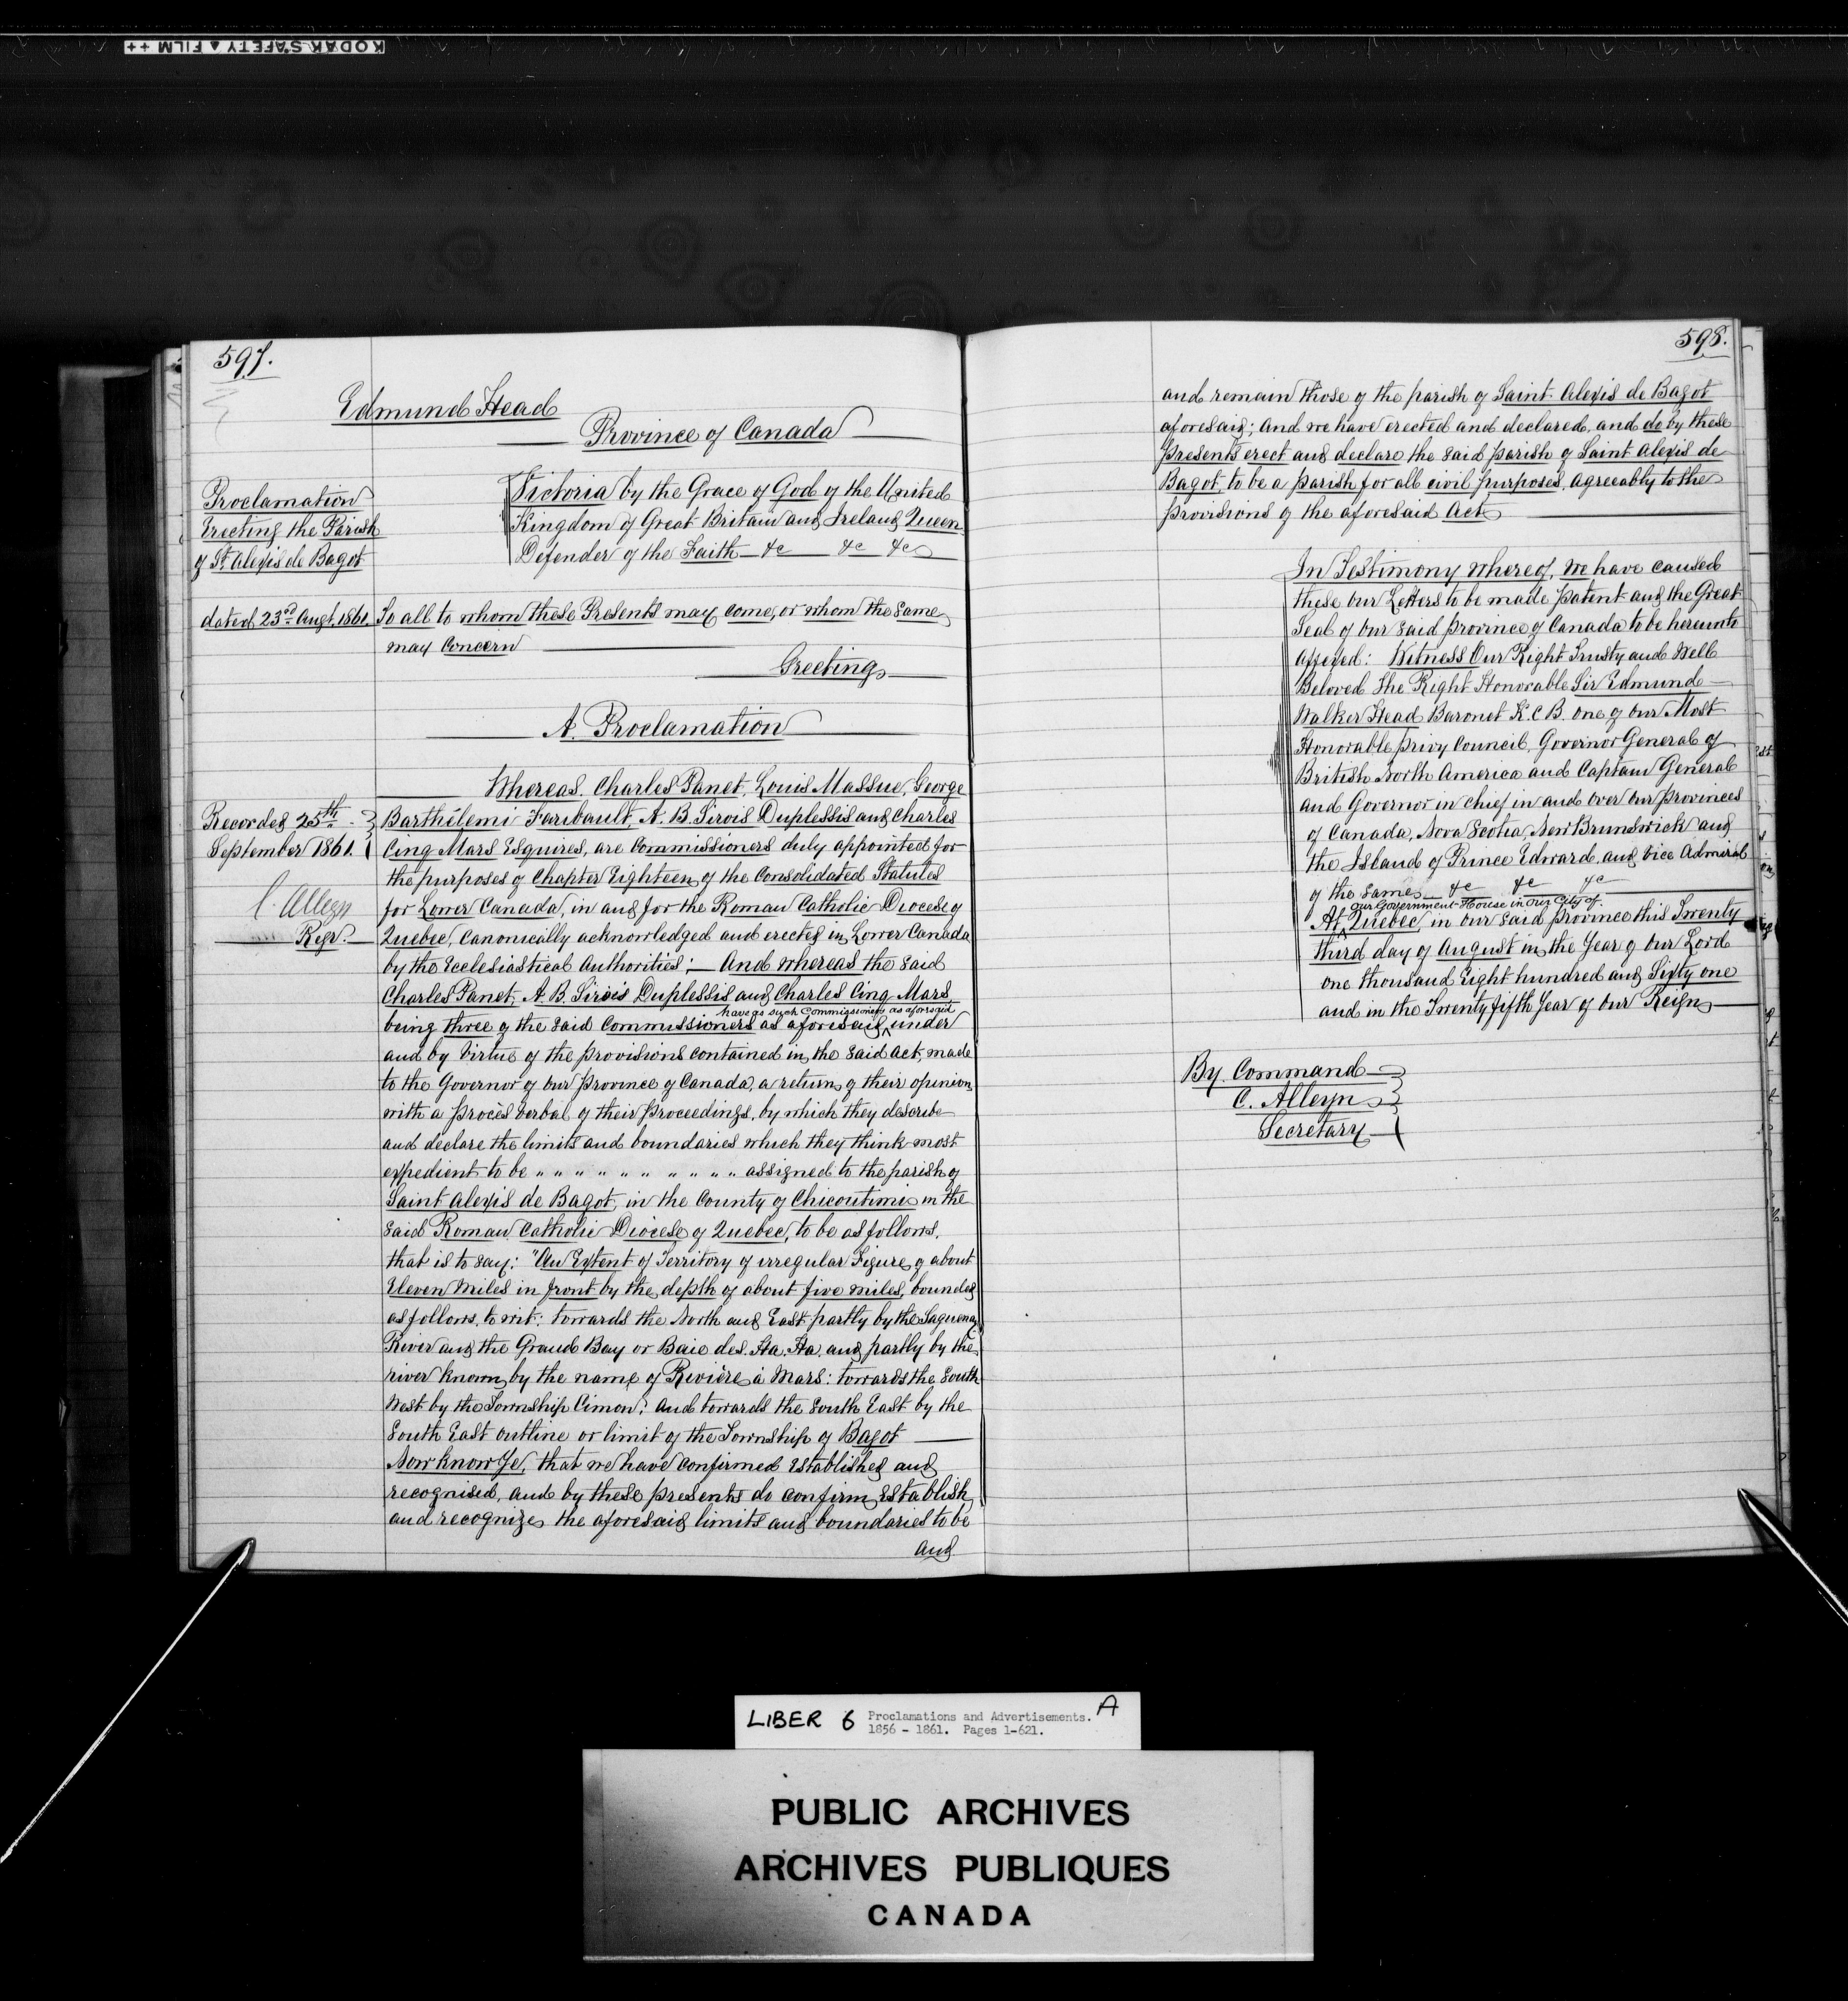 KODAK SAFETY ▲ FILM ++
597.
Edmund Head
Province of Canada
Proclamation
Erecting the Parish
of St. Alexis de Bagot
dated 23rd Augt. 1861.
Victoria by the Grace of God of the United
Kingdom of Great Britain and Ireland Queen
Defender of the Faith — &c — &c &c
To all to whom these Presents may come, or whom the same
may Concern
Greeting
A Proclamation
Recorded 25th
September 1861.
C. Alleyn
Regr.
Whereas Charles Panet, Louis Massue, George
Barthélemi Faribault, A. B. Sirois Duplessis and Charles
Cinq Mars Esquires, are Commissioners duly appointed for
the purposes of Chapter Eighteen of the Consolidated Statutes
for Lower Canada, in and for the Roman Catholic Diocese of
Quebec, Canonically acknowledged and erected in Lower Canada
by the Ecclesiastical Authorities; — And whereas the said
Charles Panet, A. B. Sirois Duplessis and Charles Cinq Mars
have as such Commissioners as aforesaid
being three of the said Commissioners as aforesaid, under
and by Virtue of the provisions contained in the said Act, made
to the Governor of Our Province of Canada, a return of their opinion
with a procès verbal of their proceedings, by which they describe
and declare the limits and boundaries which they think most
expedient to be " " " " " " " " " " assigned to the parish of
Saint Alexis de Bagot, in the County of Chicoutimi in the
said Roman Catholic Diocese of Quebec, to be as follows,
that is to say: "An Extent of Territory of irregular Figure, of about
Eleven Miles in front by the depth of about five miles, bounded
as follows, to wit: towards the North and East partly by the Saguenay
River and the Grand Bay or Baie des Ha. Ha. and partly by the
river known by the name of Rivière à Mars: towards the South
West by the Township Cimon: and towards the South East by the
South East outline or limit of the Township of Bagot —
Now Know Ye, that we have confirmed Established and
recognised, and by these presents do confirm, Establish
and recognize the aforesaid limits and boundaries to be
and
598.
and remain those of the parish of Saint Alexis de Bagot
aforesaid; And we have erected and declared, and do by these
Presents erect and declare the said parish of Saint Alexis de
Bagot, to be a parish for all civil purposes, agreeably to the
provisions of the aforesaid Act
In Testimony whereof, We have caused
these Our Letters to be made Patent and the Great
Seal of Our said Province of Canada to be hereunto
affixed: Witness Our Right Trusty and Well
Beloved The Right Honorable Sir Edmund —
Walker Head Baronet K. C B. One of Our Most
Honorable Privy Council, Governor General of
British North America and Captain General
and Governor in Chief in and over Our Provinces
of Canada, Nova Scotia, New Brunswick and
the Island of Prince Edward, and Vice Admiral
of the Same — &c &c &c
Our Government House in Our City of
At Quebec, in Our said Province this Twenty
third day of August in the Year of Our Lord
one thousand Eight hundred and Sixty one
and in the Twenty fifth Year of Our Reign
By Command
C. Alleyn
Secretary
LIBER 6 Proclamations and Advertisements. A
1856 - 1861. Pages 1-621.
PUBLIC ARCHIVES
ARCHIVES PUBLIQUES
CANADA